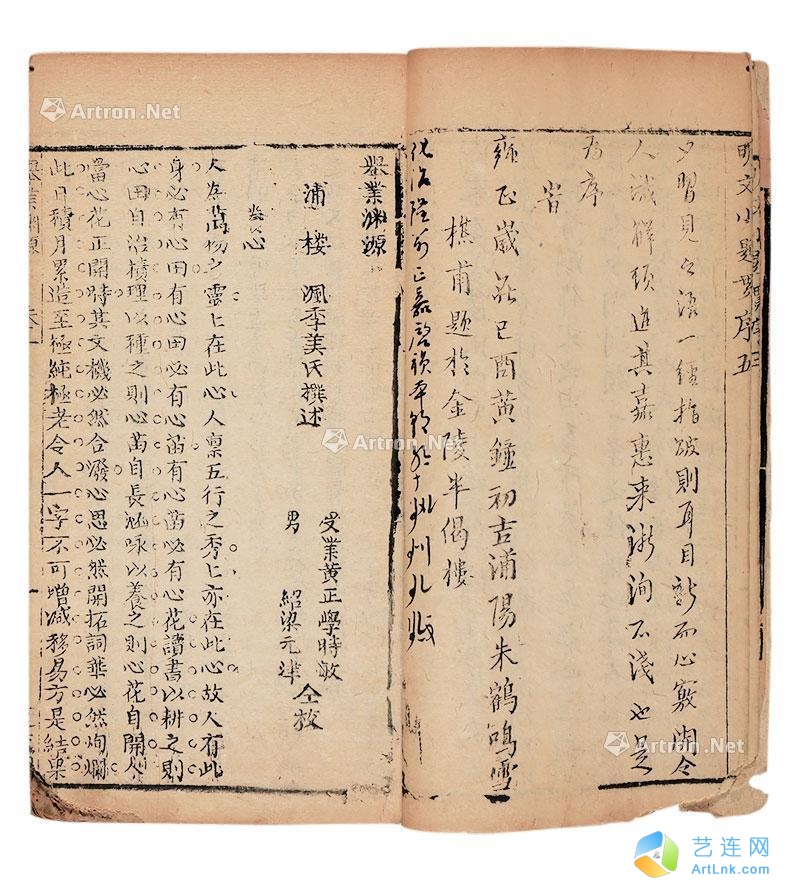 明文小題貫序五
夕習見之語一經指破則耳目新而心竅開令
人誠解頤進真嘉惠來許洵不淺也是
為序
皆
雍正歲在己酉黃鐘初吉浦陽朱鶴鳴雪
樵甫題於金陵半偈樓
化治隆萬正嘉啟禎
舉業淵源
浦樓 渢季美氏撰述
受業黃正學時敏
男 紹梁元
仝校
養心
人為萬物之靈〻在此心人稟五行之秀〻亦在此心故人有此
身必有心田有心田必有心苗有心苗必有心花讀書以耕之則
心田自治積理以種之則心苗自長涵咏以養之則心花自開人
當心花正開時其文機必然合潑心思必然開拓詞華必然絢爛
此日積月累造至極純極老令人一字不可增減移易方是結果
舉業淵源
Artron.Net
Artron.Net
Artron.Net
艺连网
ArtLnk.com